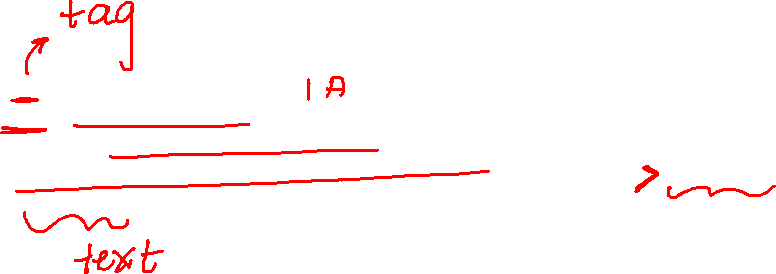 tag
1 A
>
text